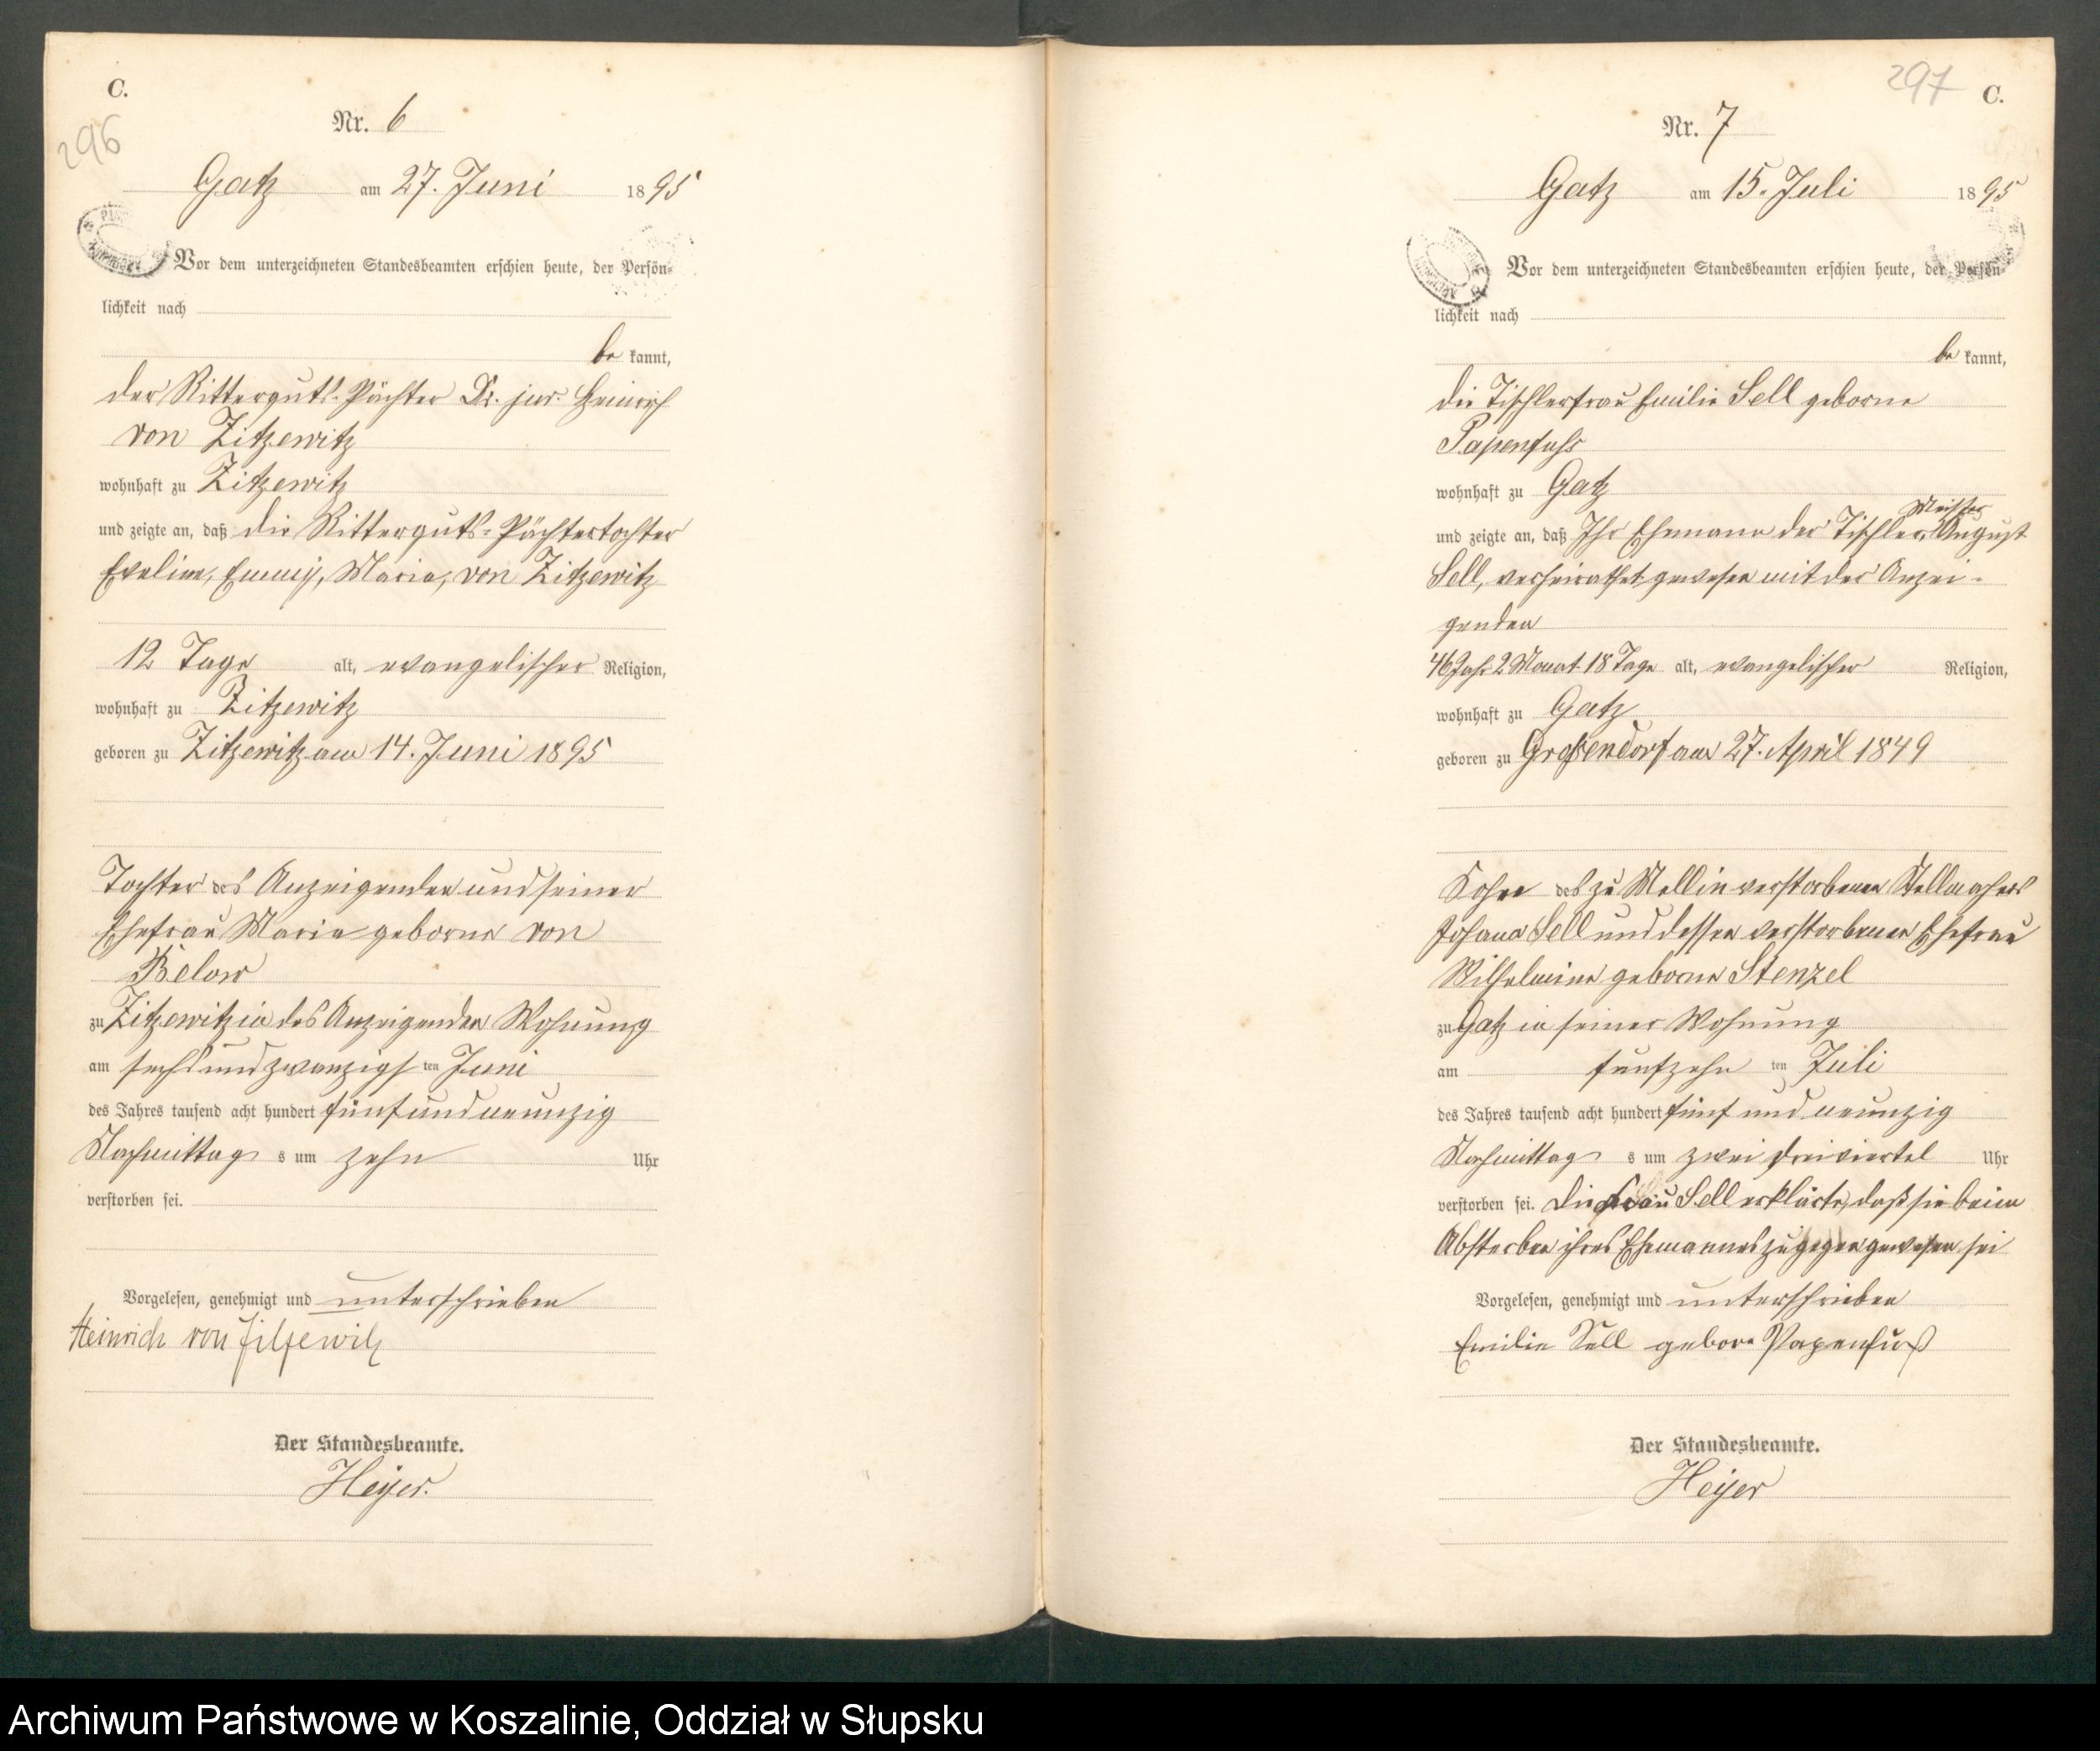 C.
296
Nr. 6
Gatz am 27. Juni 1895
Vor dem unterzeichneten Standesbeamten erschien heute, der Persön-
lichkeit nach
be kannt,
der Ritterguts-Pächter Dr. jur. Heinrich
von Zitzewitz
wohnhaft zu Zitzewitz
und zeigte an, daß die Ritterguts-Pächtertochter
Eveline, Emmy, Maria, von Zitzewitz
12 Tage alt, evangelischer Religion,
wohnhaft zu Zitzewitz
geboren zu Zitzewitz am 14. Juni 1895
Tochter des Anzeigenden und seiner
Ehefrau Maria geborne von
Below
zu Zitzewitz in des Anzeigenden Wohnung
am sechsundzwanzigsten Juni
des Jahres tausend acht hundert fünfundneunzig
Nachmittags um zehn Uhr
verstorben sei.
Vorgelesen, genehmigt und unterschrieben
Heinrich von Zitzewitz
Der Standesbeamte.
Heyer.
297
C.
Nr. 7
Gatz am 15. Juli 1895
Vor dem unterzeichneten Standesbeamten erschien heute, der Persön-
lichkeit nach
be kannt,
die Tischlerfrau Emilie Sell geborne
Papenfuhs
wohnhaft zu Gatz
Meister
und zeigte an, daß Ihr Ehemann der Tischler August
Sell, verheirathet gewesen mit der Anzei-
genden
46 Jahr 2 Monat 18 Tage alt, evangelischer Religion,
wohnhaft zu Gatz
geboren zu Großendorf am 27. April 1849
Sohn des zu Mellin verstorbenen Stellmachers
Johann Sell und dessen verstorbenen Ehefrau
Wilhelmine geborne Stenzel
zu Gatz in seiner Wohnung
am fünfzehnten Juli
des Jahres tausend acht hundert fünf und neunzig
Nachmittags um zwei dreiviertel Uhr
verstorben sei. Die Frau Sell erklärte, daß sie beim
Absterben ihres Ehemannes zugegen gewesen sei
Vorgelesen, genehmigt und unterschrieben
Emilie Sell geborn Papenfuß
Der Standesbeamte.
Heyer
Archiwum Państwowe w Koszalinie, Oddział w Słupsku